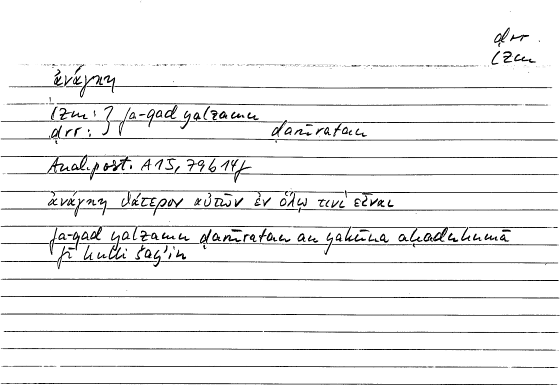 ḍrr
lzm
ἀνάγκη
lzm : } fa-qad yalzamu
ḍrr : } ḍarūratan
Anal. post. A 15, 79b14f
ἀνάγκη θάτερον αὐτῶν ἐν ὅλῳ τινὶ εἶναι
fa-qad yalzamu ḍarūratan an yakūna aḥaduhumā
fī kulli šayʾin